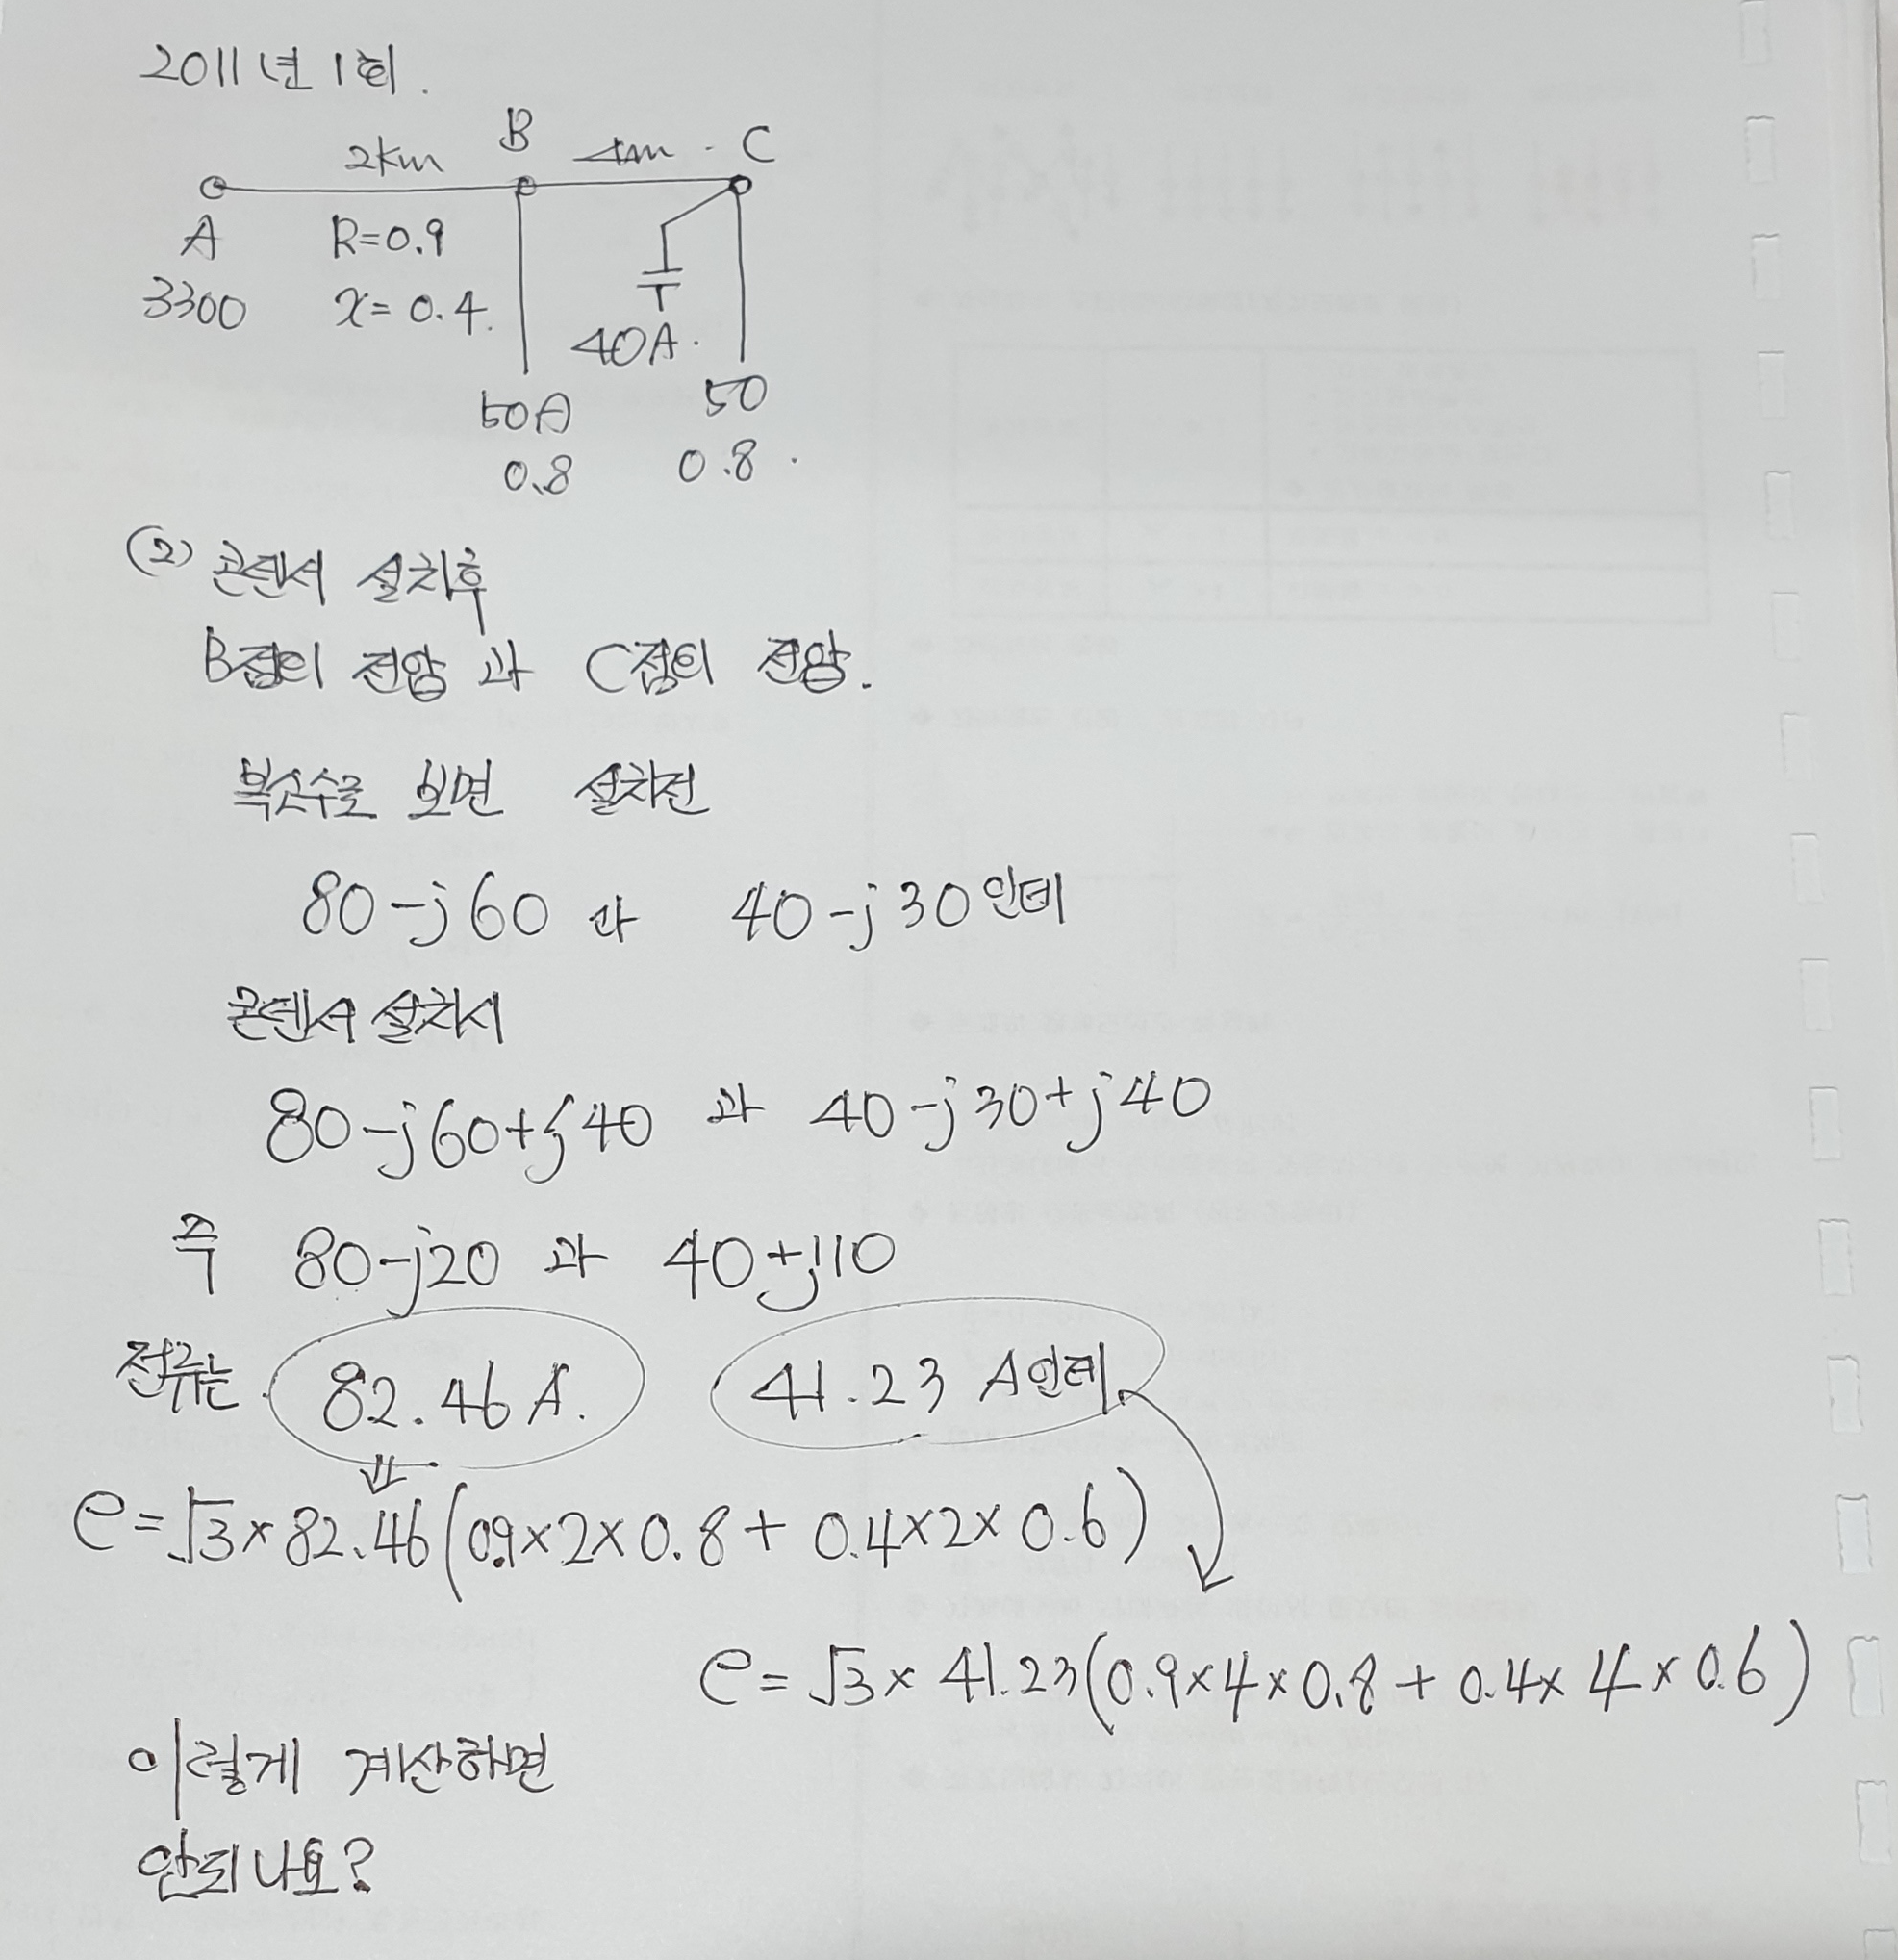 2011년 1회.
2km B 4km C
A R=0.9
3300 x=0.4.
40A.
50A 50
0.8 0.8.
(2) 콘덴서 설치후
B점의 전압과 C점의 전압.
복소수로 보면 설치전
80-j60 과 40-j30인데
콘덴서 설치시
80-j60+j40 과 40-j30+j40
즉 80-j20 과 40+j10
전류는 82.46A. 41.23 A인데
e=√3×82.46(0.9×2×0.8+0.4×2×0.6)
e=√3×41.23(0.9×4×0.8+0.4×4×0.6)
이렇게 계산하면
안되나요?